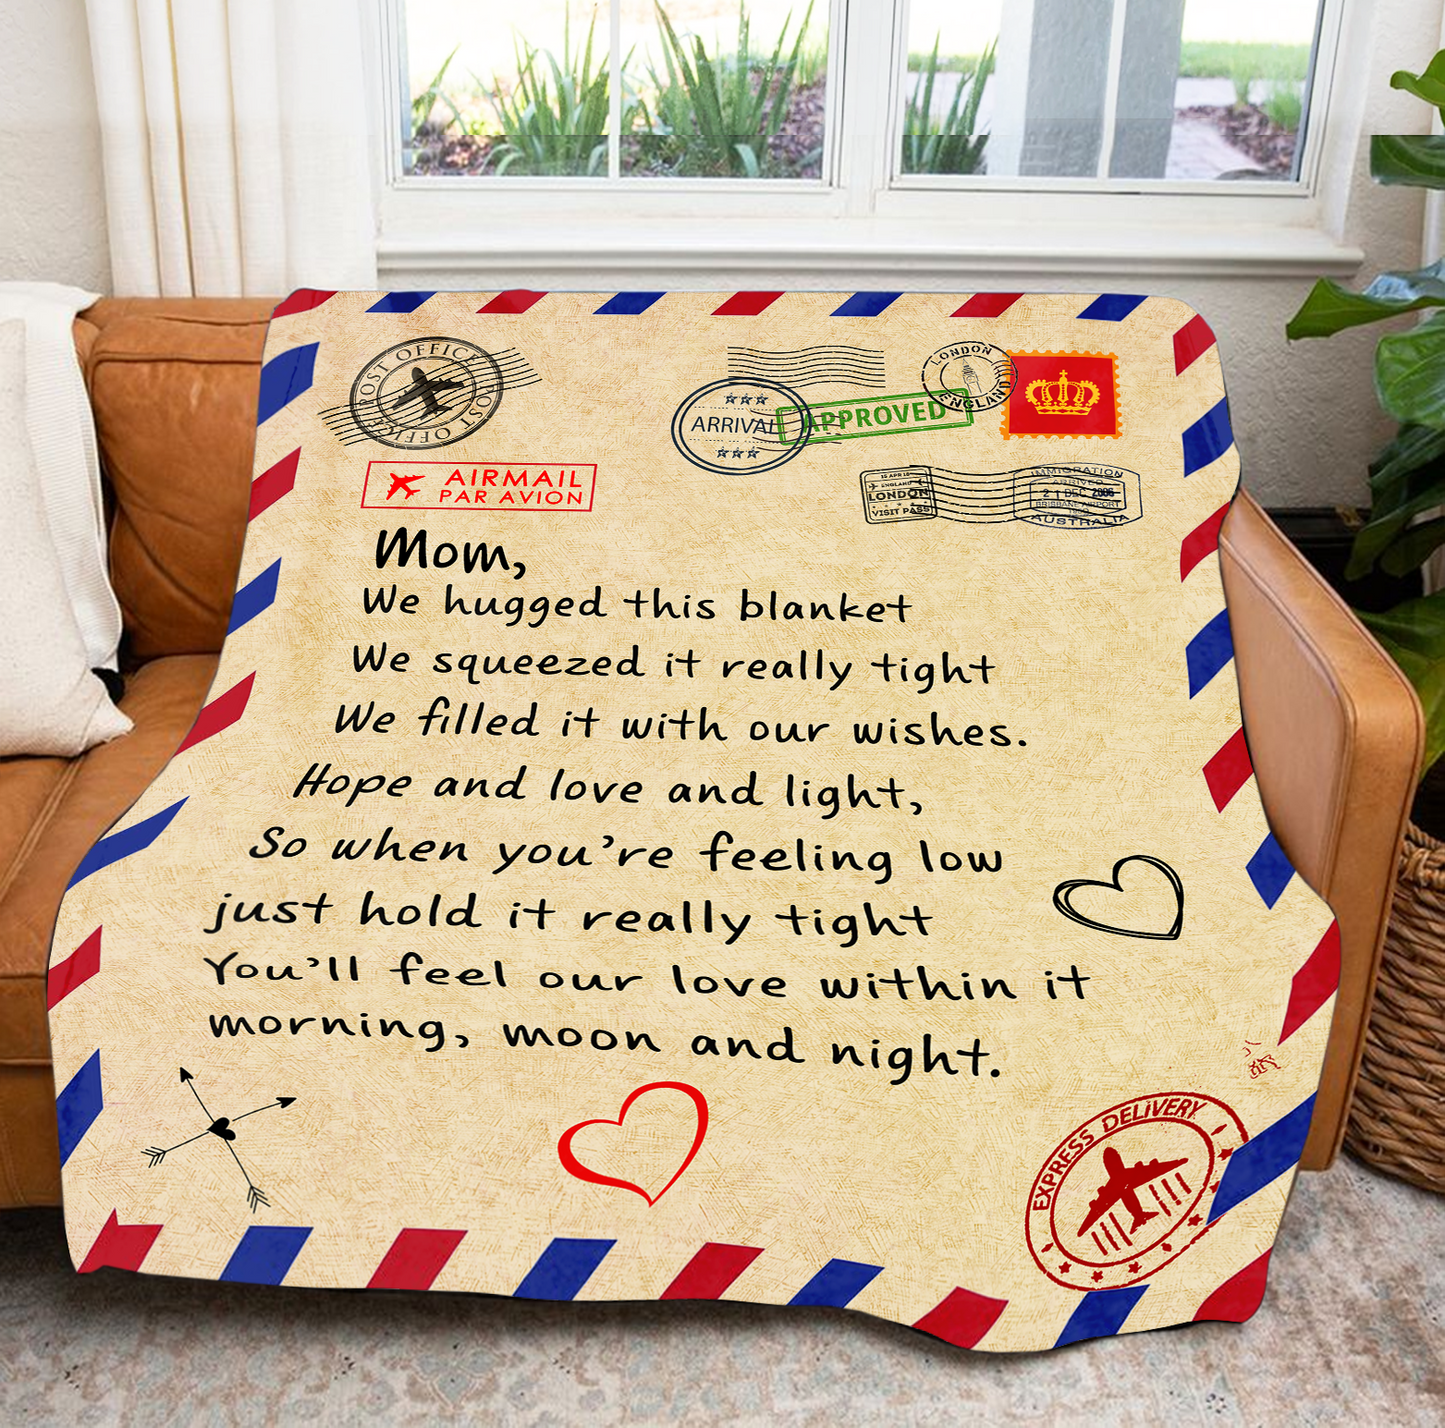 POST OFFICE
POST OFFICE
AIRMAIL
PAR AVION
ARRIVAL
APPROVED
LONDON
ENGLAND
15 APR 10
ENGLAND
LONDON
VISIT PASS
IMMIGRATION
ARRIVED
21 DEC 2006
BRISBANE AIRPORT
AUSTRALIA
Mom,
We hugged this blanket
We squeezed it really tight
We filled it with our wishes.
Hope and love and light,
So when you're feeling low
just hold it really tight
You'll feel our love within it
morning, moon and night.
EXPRESS DELiVERY